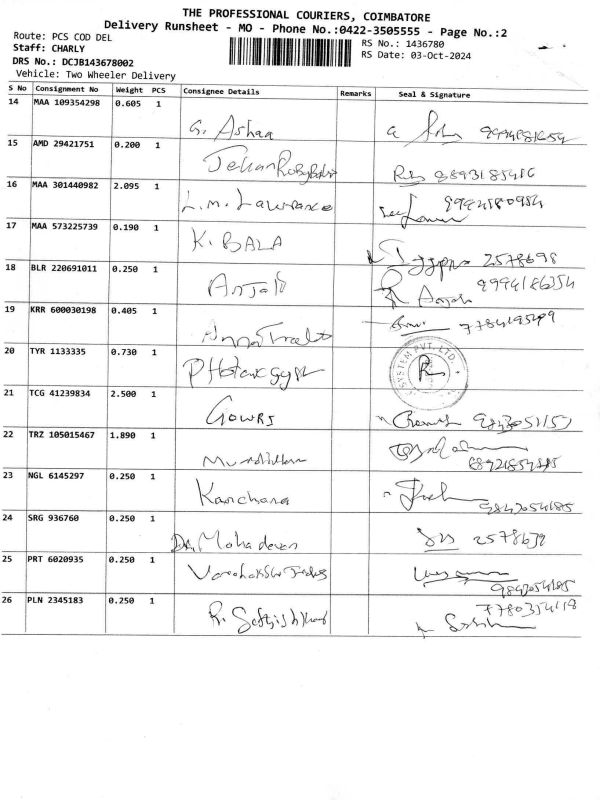 THE PROFESSIONAL COURIERS, COIMBATORE
Delivery Runsheet - MO - Phone No.:0422-3505555 - Page No.:2
Route: PCS COD DEL
RS No.: 1436780
Staff: CHARLY
RS Date: 03-Oct-2024
DRS No.: DCJB143678002
Vehicle: Two Wheeler Delivery
S No Consignment No Weight PCS Consignee Details Remarks Seal & Signature
14 MAA 109354298 0.605 1
G. Ashaa
15 AMD 29421751 0.200 1
9893185416
16 MAA 301440982 2.095 1
L.M. Lawrance 9994180954
17 MAA 573225739 0.190 1
K. BALA 2578698
18 BLR 220691011 0.250 1
Anjali 9994186254
19 KRR 600030198 0.405 1
20 TYR 1133335 0.730 1
SYSTEM PVT. LTD.
21 TCG 41239834 2.500 1
GOWRI
22 TRZ 105015467 1.890 1
23 NGL 6145297 0.250 1
Kanchana 9843054185
24 SRG 936760 0.250 1
Dr. Mahadevan 2578639
25 PRT 6020935 0.250 1
9843054185
26 PLN 2345183 0.250 1
R. Sathishkumar